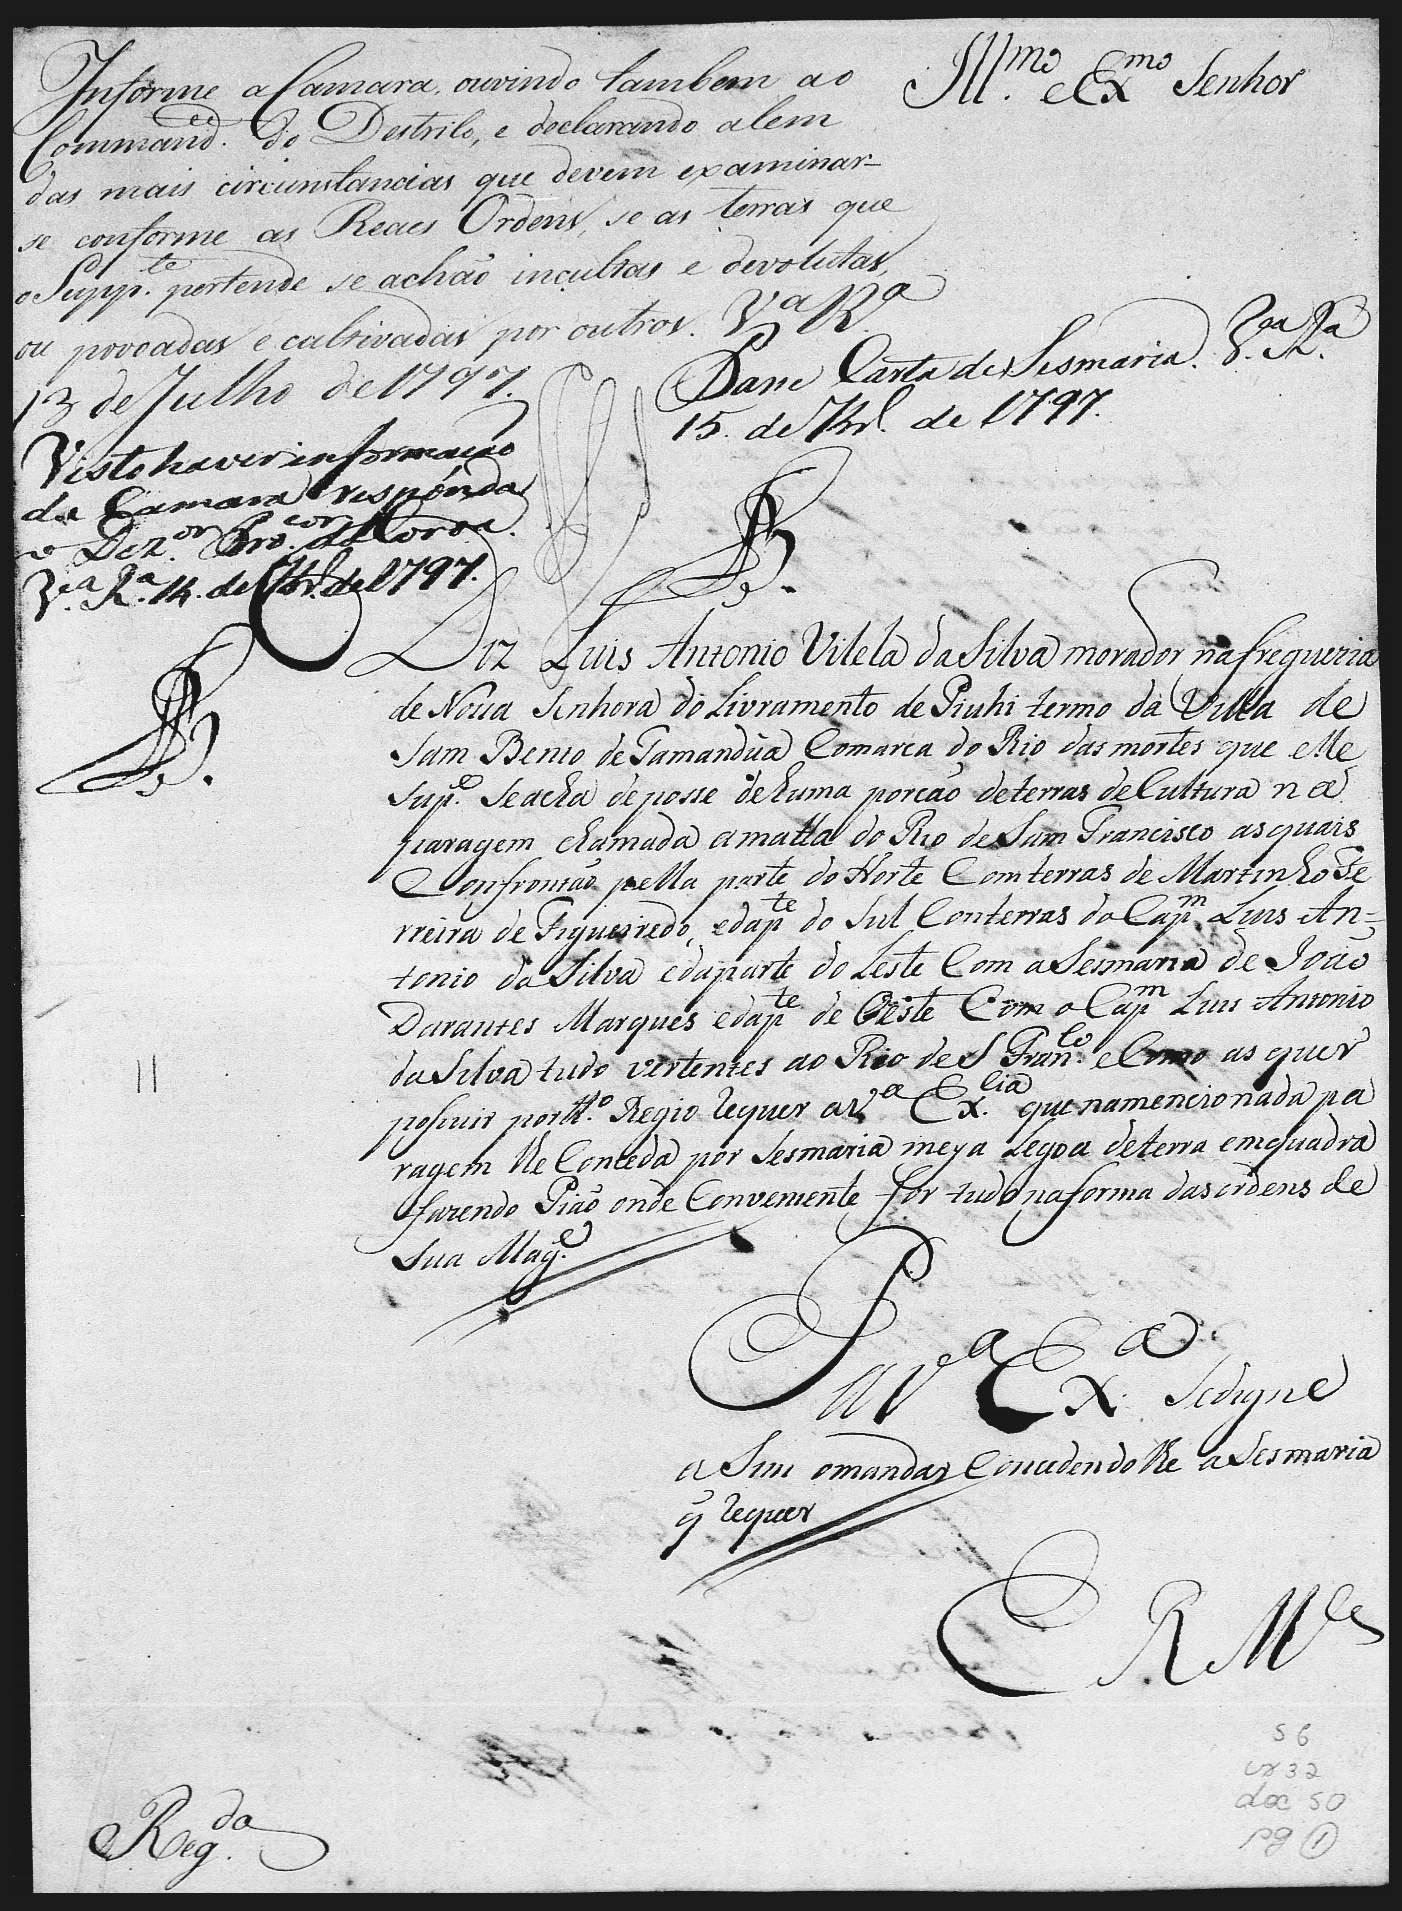 Ill.mo e Ex.mo Senhor
Informe a Camara, ouvindo tambem ao
Command.e do Destrito, e declarando alem
das mais circunstancias que devem examinar-
se conforme as Reaes Ordens, se as terras que
o Supp.te pertende se achão incultas e devolutas,
ou povoadas e cultivadas por outros. V.a R.a
13 de Julho de 1797.
Passe Carta de Sesmaria. V.a R.a
15. de de 1797.
Visto haver informação
da Camara responda
o Dez.or Pro.cor da Coroa.
V.a R.a 14. de de 1797.
Diz Luis Antonio Vilela da Silva morador na freguezia
de Nossa Senhora do Livramento de Piuhi termo da Villa de
Sam Bento de Tamandùa Comarca do Rio das mortes que elle
Sup.e Seacha deposse dehuma porcão deterras deCultura na
paragem chamada amatta do Rio de Sam Francisco asquais
Confrontão pella parte do Norte Comterras de Martinho Fe
rreira de Figueiredo, edap.te do Sul Conterras do Cap.m Luis An=
tonio da Silva edaparte do Leste Com a Sesmaria de João
Darantes Marques edap.te de Oeste Com o Cap.m Luis Antonio
da Silva tudo vertentes ao Rio de S Fran.co eComo as quer
possuir por tt.o Regio Requer aV.a Ex.cia quenamencionada pa
ragem lhe Conceda por Sesmaria meya Legoa deterra emquadra
fazendo Pião onde Conveniente for tudo naforma dasordens de
Sua Mag.e
P aV.a Ex.a Sedigne
aSim omandar Concedendolhe aSesmaria
q̃ Requer
E R M.ce
11
Reg.da
56
cx 32
doc 50
pg 1